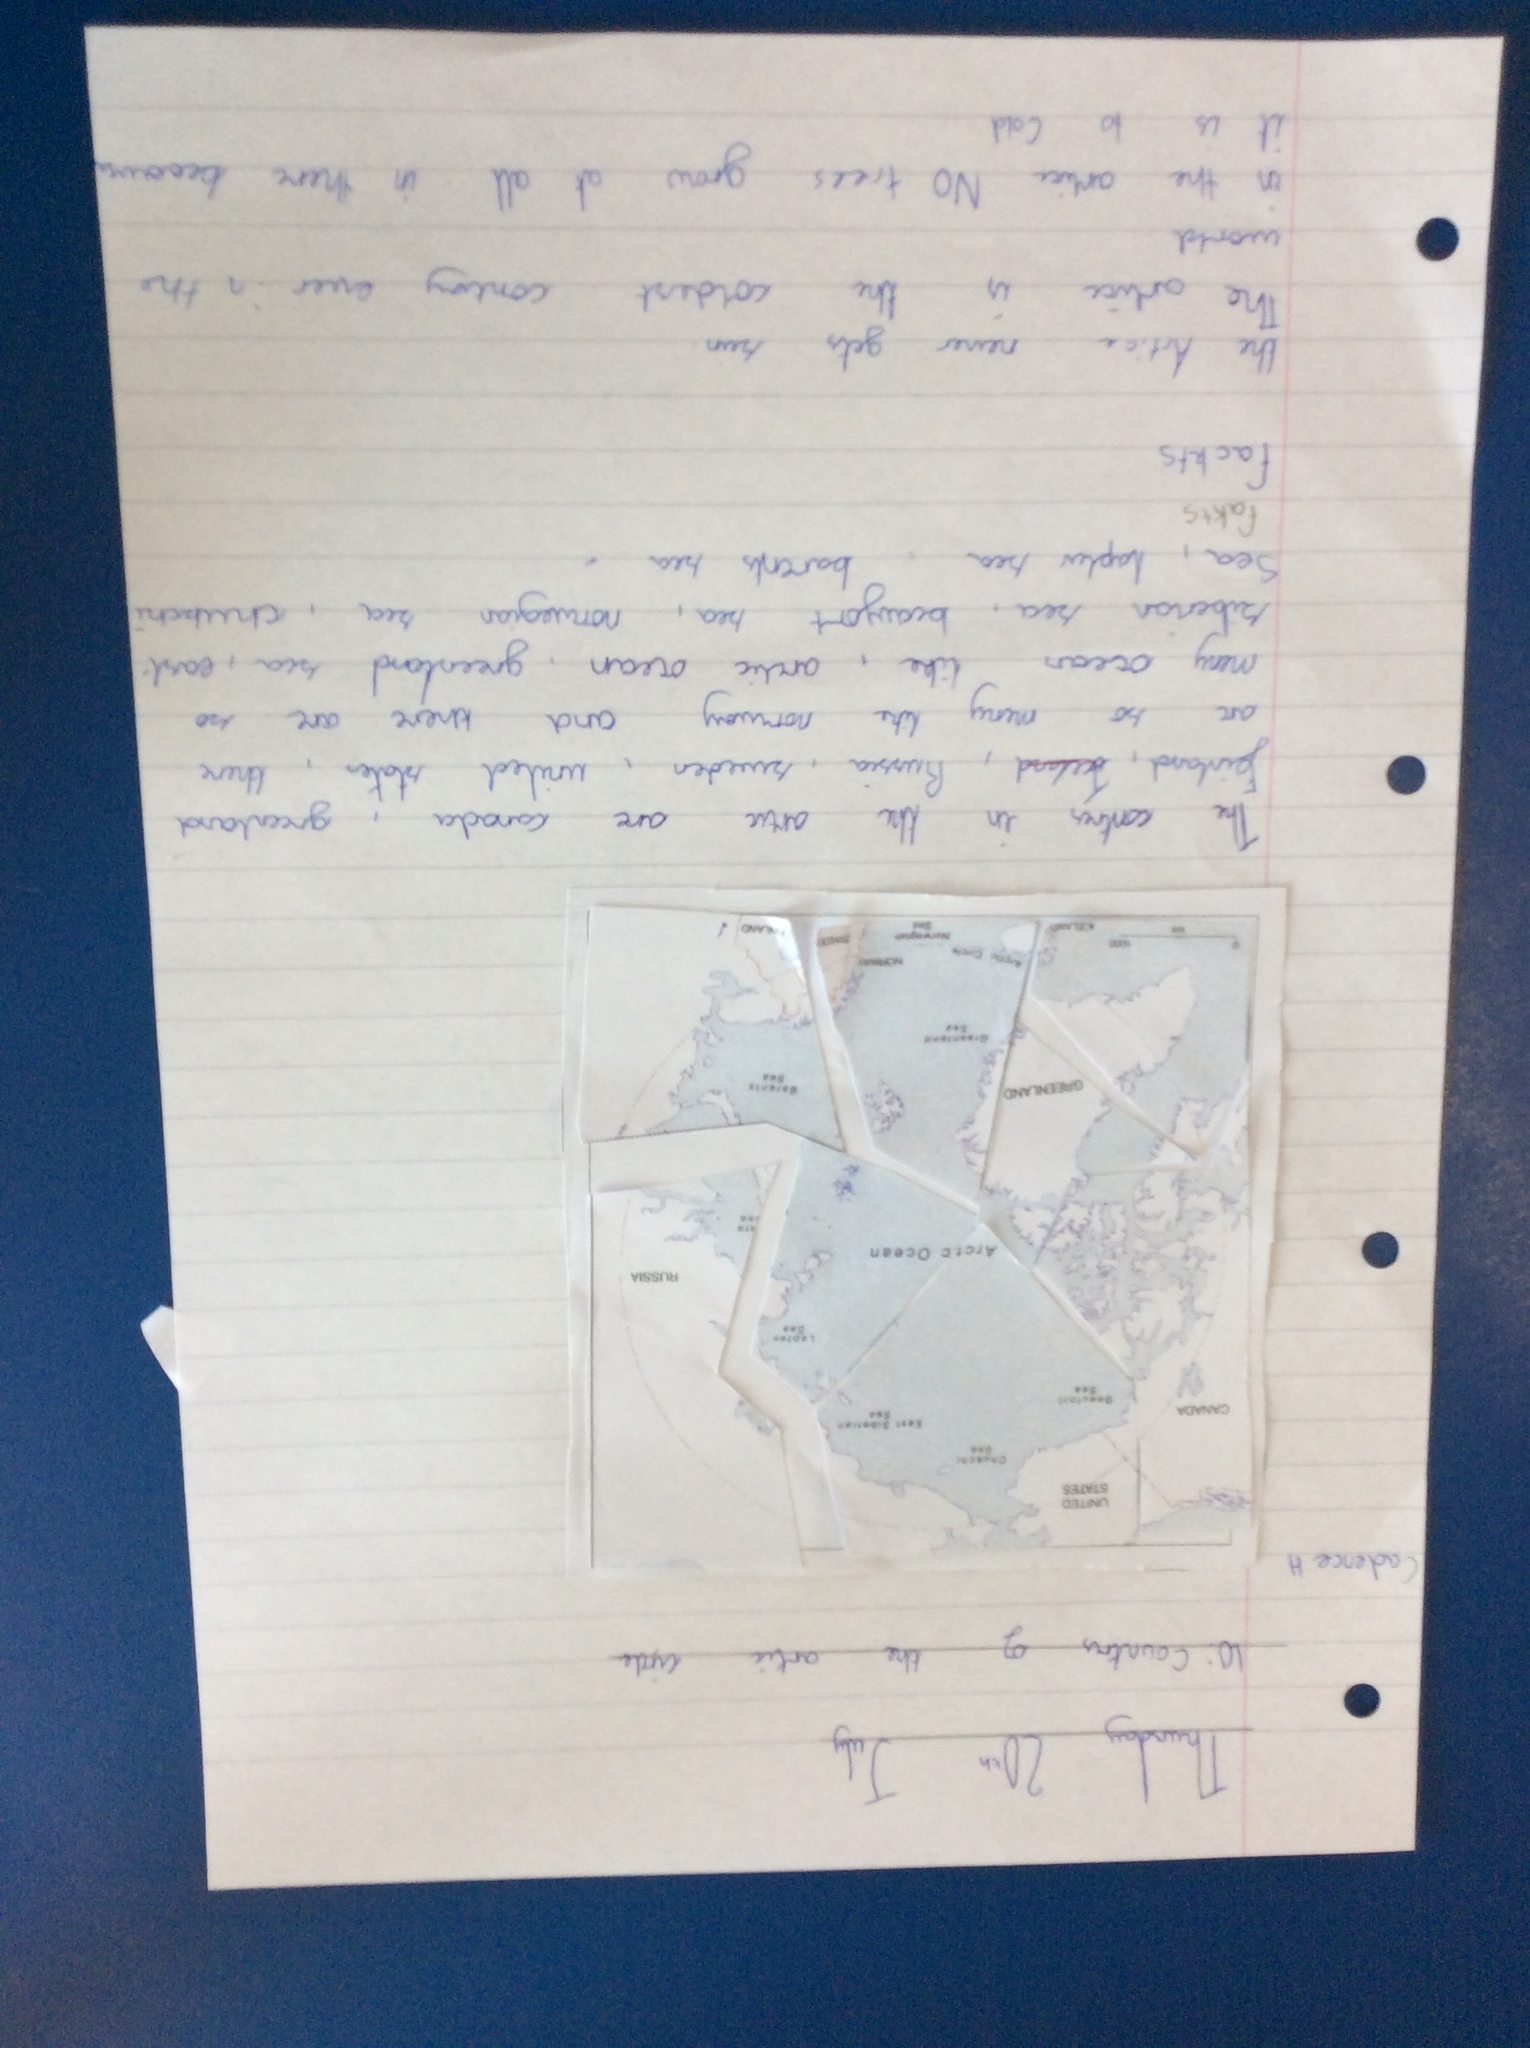 Thursday 20th July
LO: Countrys of the artic circle
Cadence H
UNITED
STATES
CANADA
Chukchi
Sea
East Siberian
Sea
Beaufort
Sea
Laptev
Sea
RUSSIA
Arctic Ocean
Barents
Sea
GREENLAND
Greenland
Sea
Arctic Circle
NORWAY
ICELAND
Norwegian
Sea
The contrys in the artic are canada , greenland
Finland , Iceland , Russia , sweden , united states , there
are so many like norway and there are so
many ocean like , artic ocean , greenland sea , east
siberian sea , beauyort sea , norwegian sea , chuckchi
Sea , laptev sea , barents sea .
fakts
fackts
the Artice never gets sun
The artice is the coldest contary ever in the
world
in the artice NO trees grow at all in there because
it is to Cold